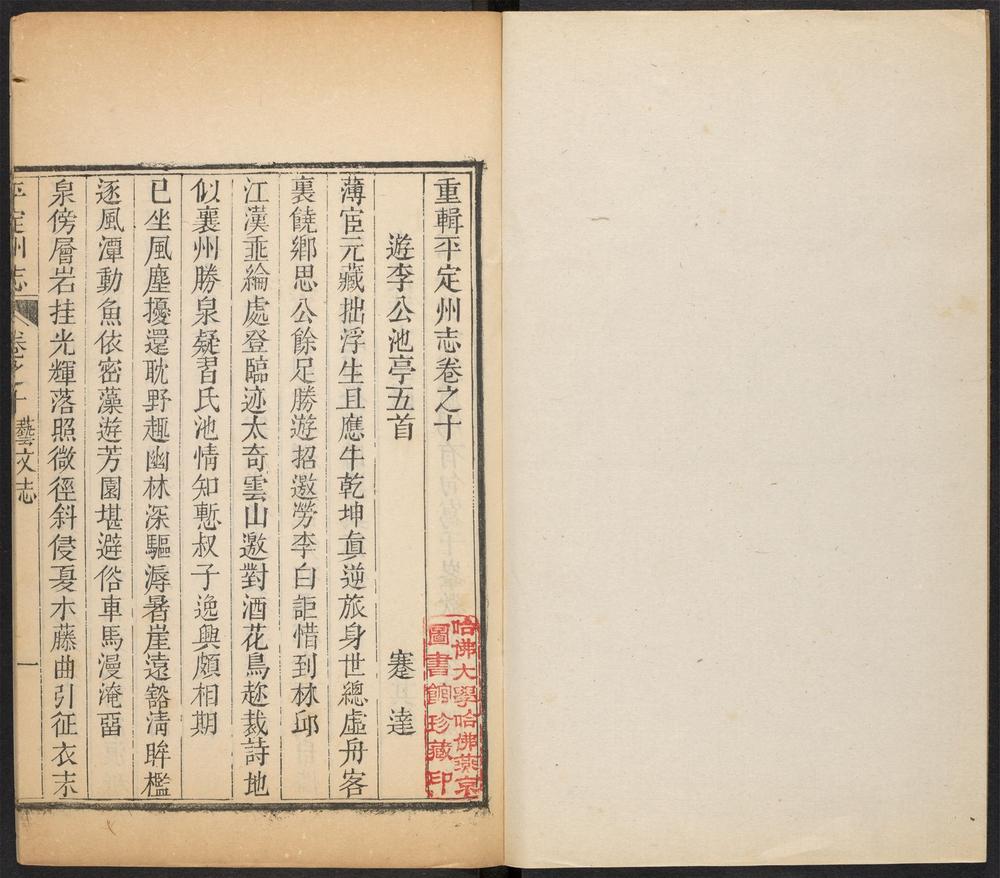 重輯平定州志卷之十
遊李公池亭五首
蹇達
薄宦元藏拙浮生且應牛乾坤眞逆旅身世總虛舟客
裏饒鄉思公餘足勝遊招邀勞李白詎惜到林邱
江漢垂綸處登臨迹太奇雲山邀對酒花鳥趂裁詩地
似襄州勝泉疑習氏池情知慙叔子逸興頗相期
已坐風塵擾還耽野趣幽林深驅溽暑崖遠豁淸眸檻
逐風潭動魚依密藻遊芳園堪避俗車馬漫淹畱
泉傍層岩挂光輝落照微徑斜侵戛木藤曲引征衣未
平定州志
卷之十
藝文志
一
哈佛大學哈佛燕京
圖書館珍藏印